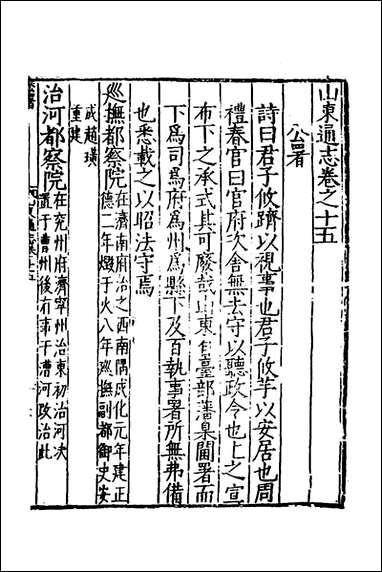 山東通志卷之十五
公署
詩曰君子攸躋以視事也君子攸芋以安居也周
禮春官曰官府次舍無去守以聽政令也上之宣
布下之承式其可廢哉山東自臺部藩臬閫署而
下爲司爲府爲州爲縣下及百執事署所無弗備
也悉載之以昭法守焉
巡撫都察院在濟南府治之西南隅成化元年建正
德二年燬于火八年巡撫副都御史安
成趙璜
重建
治河都察院在兖州府濟寧州治東初治河決
置于曹州後有事于漕河改治此